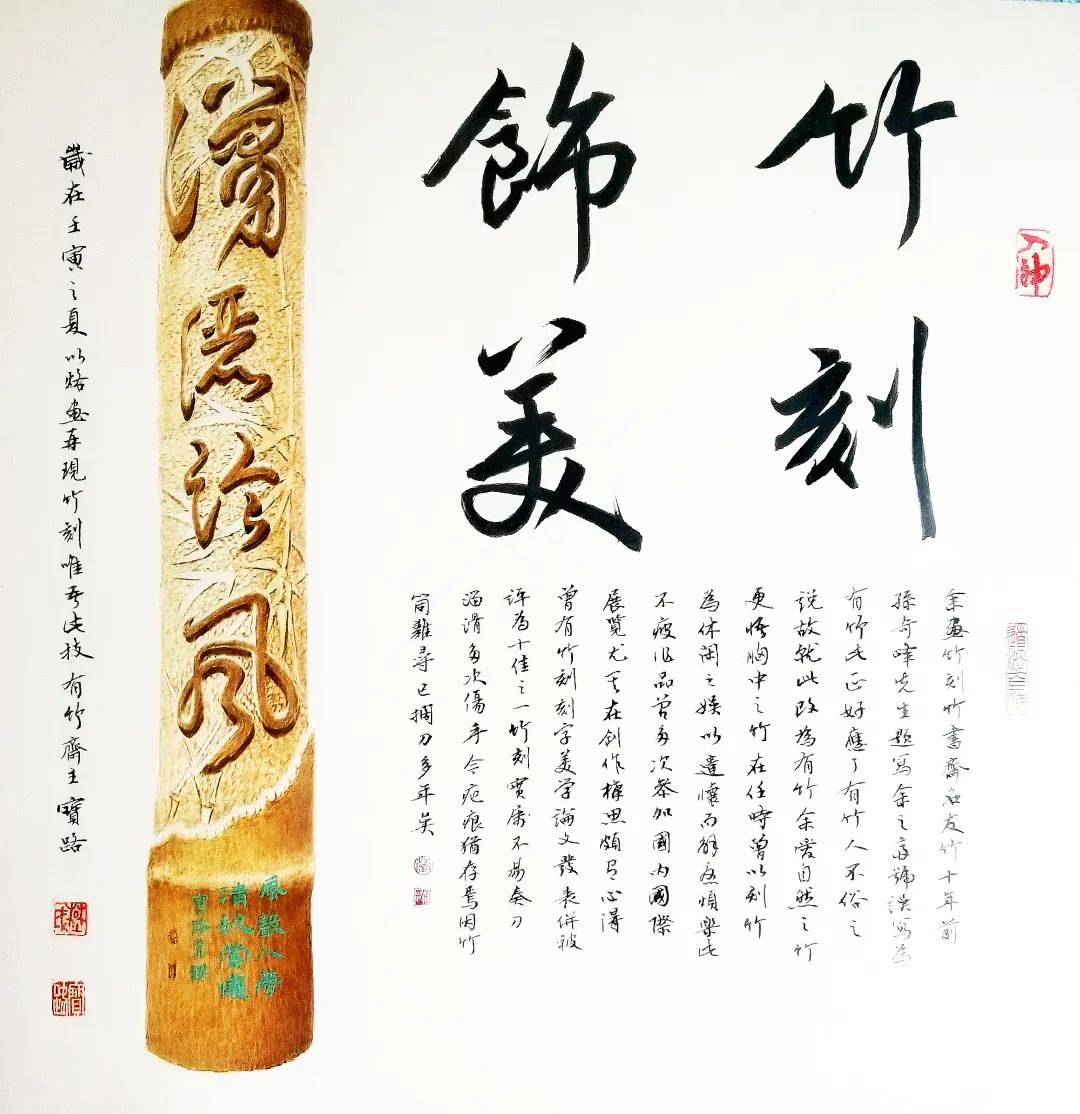 入神
道法自然
竹刻
飾美
余畫竹刻竹書齋名友竹十年前
孫奇峰先生題寫余之齋號誤寫為
有竹此正好應了有竹人不俗之
说故就此改為有竹余愛自然之竹
更悟胸中之竹在任時曾以刻竹
為休闲之娱以遣懷而解煩樂此
不疲作品曾多次參加國内國際
展覽尤其在創作構思頗有心得
曾有竹刻刻字美学論文發表併被
评為十佳之一竹刻實屬不易奏刀
溜滑多次傷手令疤痕猶存焉因竹
筒難尋已擱刀多年矣
瀟洒临風
風聲入夢
歲在壬寅之夏以烙畫再現竹刻唯吾此技有竹齋主寶路